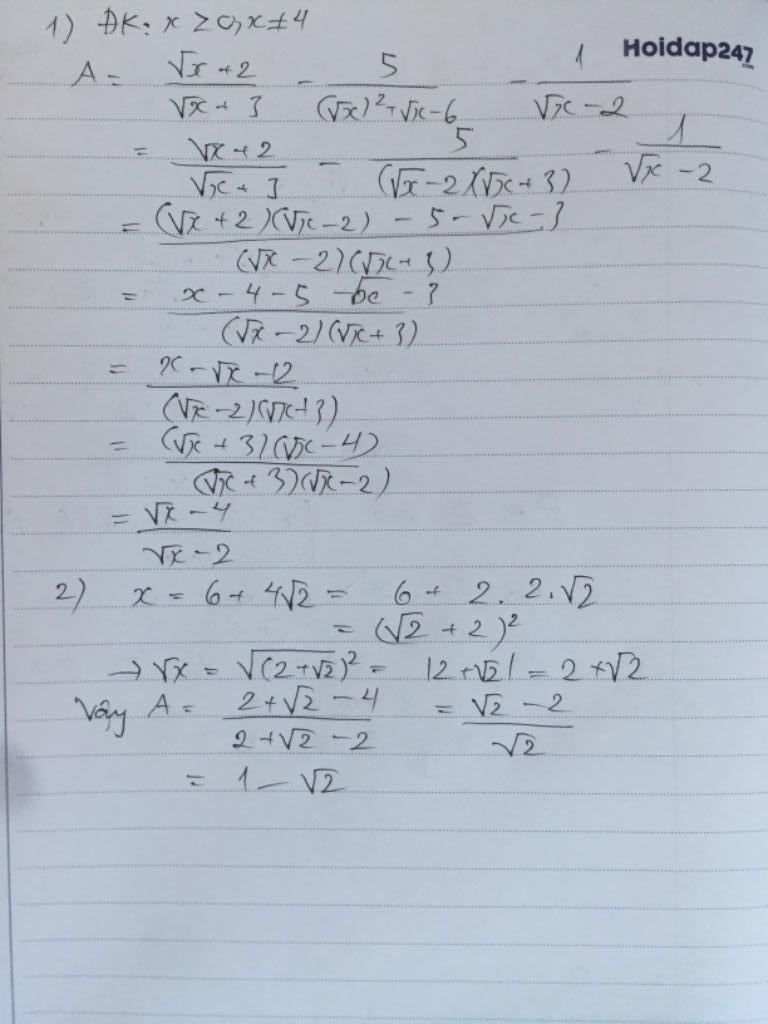 1) ĐK: x ≥ 0, x ≠ 4
Hoidap247.com
A = (√x + 2)/(√x + 3) - 5/((√x)² + √x - 6) - 1/(√x - 2)
= (√x + 2)/(√x + 3) - 5/((√x - 2)(√x + 3)) - 1/(√x - 2)
= ((√x + 2)(√x - 2) - 5 - √x - 3)/((√x - 2)(√x + 3))
= (x - 4 - 5 - √x - 3)/((√x - 2)(√x + 3))
= (x - √x - 12)/((√x - 2)(√x + 3))
= ((√x + 3)(√x - 4))/((√x + 3)(√x - 2))
= (√x - 4)/(√x - 2)
2) x = 6 + 4√2 = 6 + 2.2.√2
= (√2 + 2)²
→ √x = √(2 + √2)² = |2 + √2| = 2 + √2
Vậy A = (2 + √2 - 4)/(2 + √2 - 2) = (√2 - 2)/√2
= 1 - √2